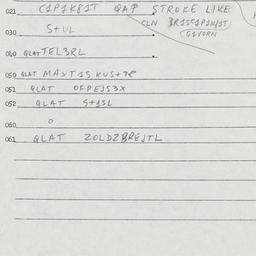 021 C1P1K81T QAP STROKE LIKE
CLN BR1SC1P1K1T)
030 S+UL (GIVORN
040 QLAT TEL3RL
050 QLAT MAXT15 KUS+7P
051 QLAT OFPEJS3X
052 QLAT S+13L
060 O
061 QLAT ZOLDZBREJTL